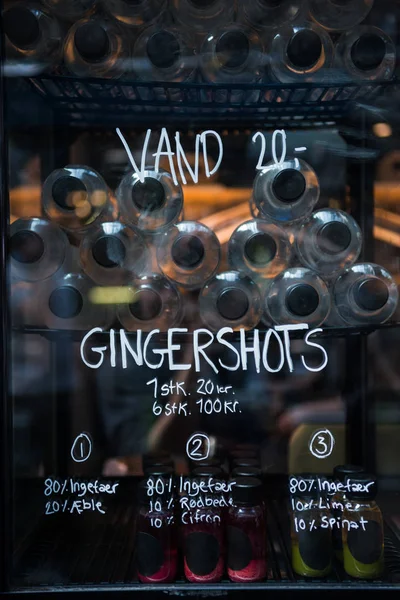 VAND 20,-
GINGERSHOTS
1 stk. 20 kr.
6 stk. 100 kr.
1
80% Ingefær
20% Æble
2
80% Ingefær
10% Rødbede
10% Citron
3
80% Ingefær
10% Lime
10% Spinat